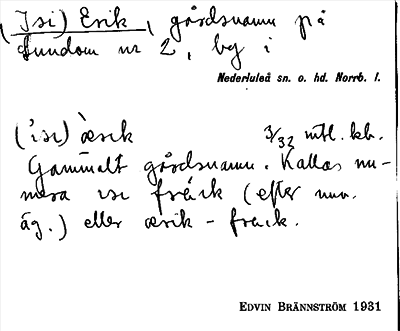 (Isi) Erik, gårdsnamn på
Sundom nr 2, by i
Nederluleå sn. o. hd. Norrb. l.
('isi) ærik 3/32 mtl. kb.
Gammalt gårdsnamn. Kallas nu-
mera isi frá̈ik (efter nuv.
äg.) eller ærik - fraik.
EDVIN BRÄNNSTRÖM 1931